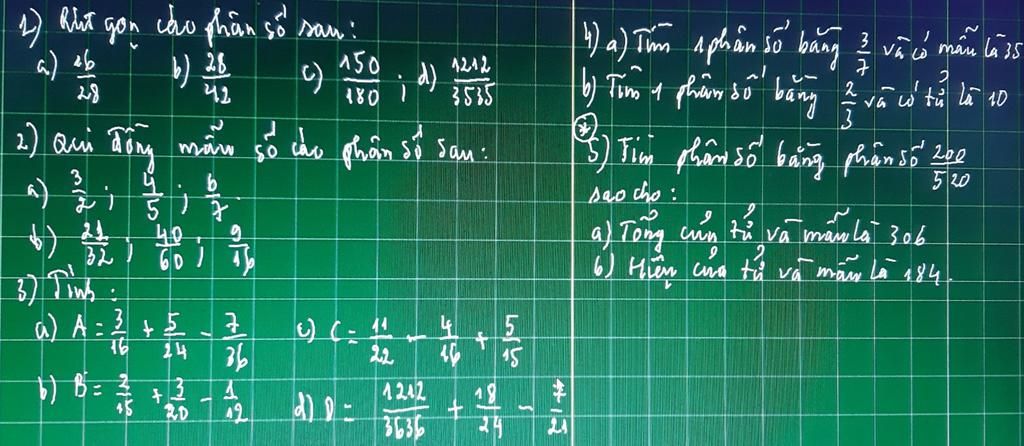 1) Rút gọn các phân số sau:
a) 16/28 b) 28/42 c) 150/180 ; d) 1212/3535
2) Qui đồng mẫu số các phân số sau:
a) 3/2 ; 4/5 ; 6/7.
b) 21/32 ; 40/60 ; 9/16
3) Tính:
a) A = 3/16 + 5/24 - 7/36 c) C = 11/22 - 4/16 + 5/15
b) B = 2/15 + 3/20 - 1/12 d) D = 1212/3636 + 18/24 - 7/21
4) a) Tìm 1 phân số bằng 3/7 và có mẫu là 35
b) Tìm 1 phân số bằng 2/3 và có tử là 10
(*)
5) Tìm phân số bằng phân số 200/520
sao cho:
a) Tổng của tử và mẫu là 306
b) Hiệu của tử và mẫu là 184.